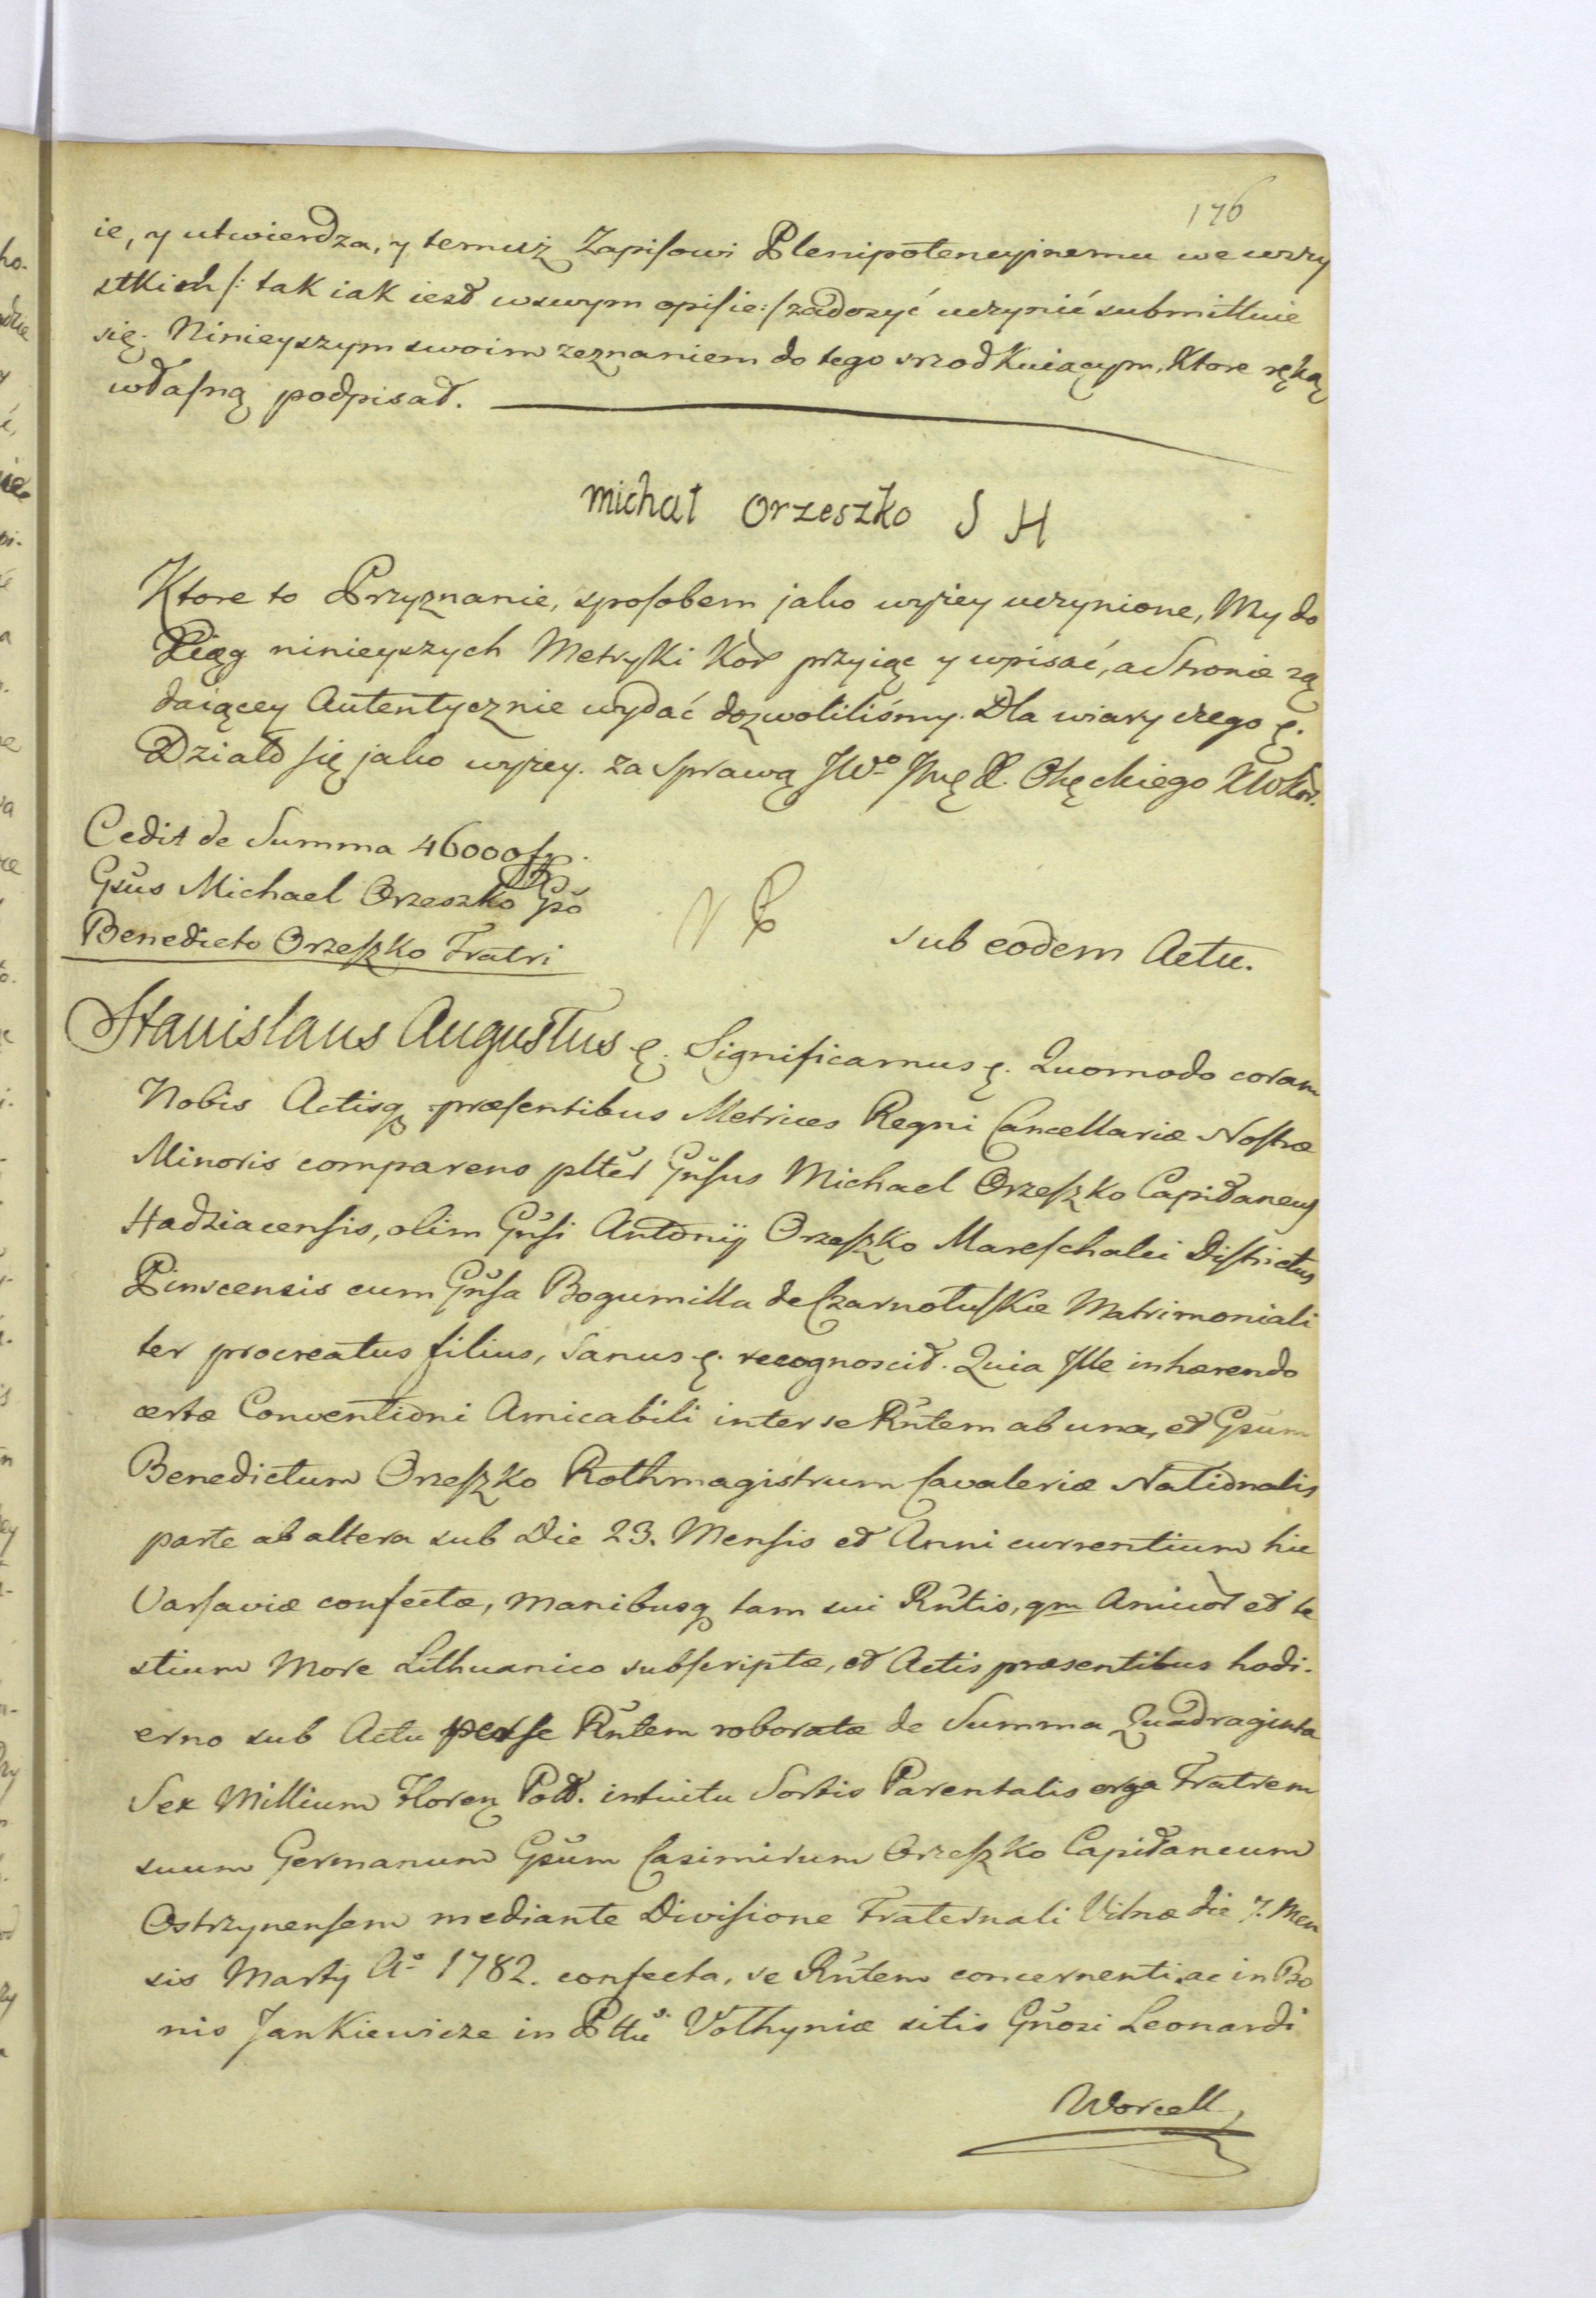 176
ie, y utwierdza, y temusz Zapisowi Plenipotencyinemu we wszy
stkich /: tak iak iest wswym opisie :/ zadosyć uczynić submittuie
się. Ninieyszym swoim zeznaniem do tego srzodkuiącym, Ktore ręką
własną podpisał.
michał orzeszko S H
Ktore to Przyznanie, sposobem jako wyżey uczynione, My do
Xiąg ninieyszych Metryki Kor przyiąc y wpisać, a Stronie żą
daiącey Autentycznie wydać dozwoliliśmy. Dla wiary czego ę.
Działo się jako wyżey. za Sprawą JWo Jmę X. Okęckiego KWKor.
Cedit de Summa 46000 fp.
Gsus Michael Orzeszko Gso
Benedicto Orzeszko Fratri
sub eodem Actu.
Stanislaus Augustus ę. Significamus ę. Quomodo coram
Nobis Actisq præsentibus Metrices Regni Cancellariæ Nostræ
Minoris comparens plter Gnsus Michael Orzeszko Capitaneus
Hadziacensis, olim Gnsi Antonij Orzeszko Mareschalci Districtus
Pinscensis cum Gnsa Bogumilla de Czarnotuskie Matrimoniali
ter procreatus filius, Sanus ę. recognoscit. Quia Ille inhærendo
certæ Conventioni Amicabili inter se Rntem ab una, et Gsum
Benedictum Orzeszko Rothmagistrum Cavaleriæ Nationalis
parte ab altera sub Die 23. Mensis et Anni currentium hic
Varsaviæ confectæ, manibusq tam sui Rntis, qm Amicor et te
stium More Lithuanico subscriptæ, et Actis præsentibus hodi-
erno sub Actu per se Rntem roboratæ de Summa Quadraginta
Sex Millium Floren Poll. intuitu Sortis Parentalis erga Fratrem
suum Germanum Gsum Casimirum Orzeszko Capitaneum
Ostrzynensem mediante Divisione Fraternali Vilnæ die 7. Men
sis Martij Ao 1782. confecta, se Rntem concernenti, ac in Bo
nis Jankiewicze in Pttu Volhyniæ sitis Gnosi Leonardi
Worcell